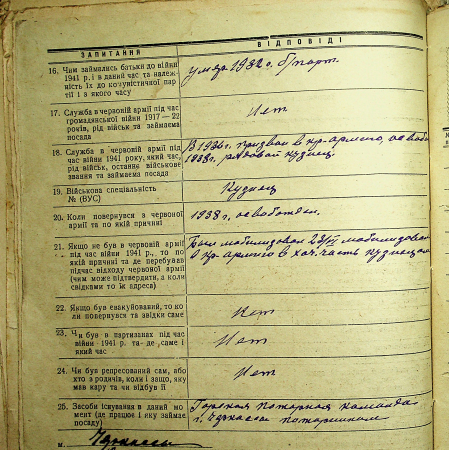 ЗАПИТАННЯ
ВІДПОВІДІ
16. Чим займались батьки до війни
1941 р. і в даний час та належ-
ність їх до комуністичної пар-
тії і з якого часу
умер 1932 г. б/парт.
17. Служба в червоній армії під час
громадянської війни 1917—22
років, рід військ та займаєма
посада
Нет
18. Служба в червоній армії під
час війни 1941 року, який час,
рід військ, останнє військове
звання та займаєма посада
В 1936 г. призван в кр-армию,
1938 г, рядовой кузнец.
19. Військова спеціальність
№ (ВУС)
Кузнец
20. Коли повернувся з червоної
армії та по якій причині
1938 г, освобожден.
21. Якщо не був в червоній армії
під час війни 1941 р., то по
якій причині та де перебував
підчас відходу червоної армії
(чим може підтвердити, а коли
свідками то їх адреса)
Был мобилизован
в кр-армию в хоз. часть кузнецом
22. Якщо був евакуйований, то ко-
ли повернувся та звідки саме
Нет
23. Чи був в партизанах під час
війни 1941 р. та де, саме і
який час
Нет
24. Чи був репресований сам, або
хто з родичів, коли і защо, яку
мав кару та чи відбув її
Нет
25. Засоби існування в даний мо-
мент (де працює і яку займає
посаду)
Городская пожарная команда
г. Черкассы пожарником
м. Черкассы